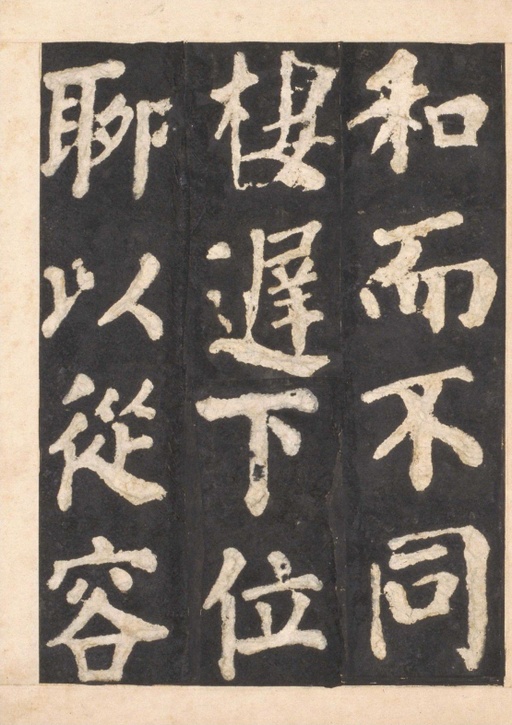 和而不同
棲遲下位
聊以從容